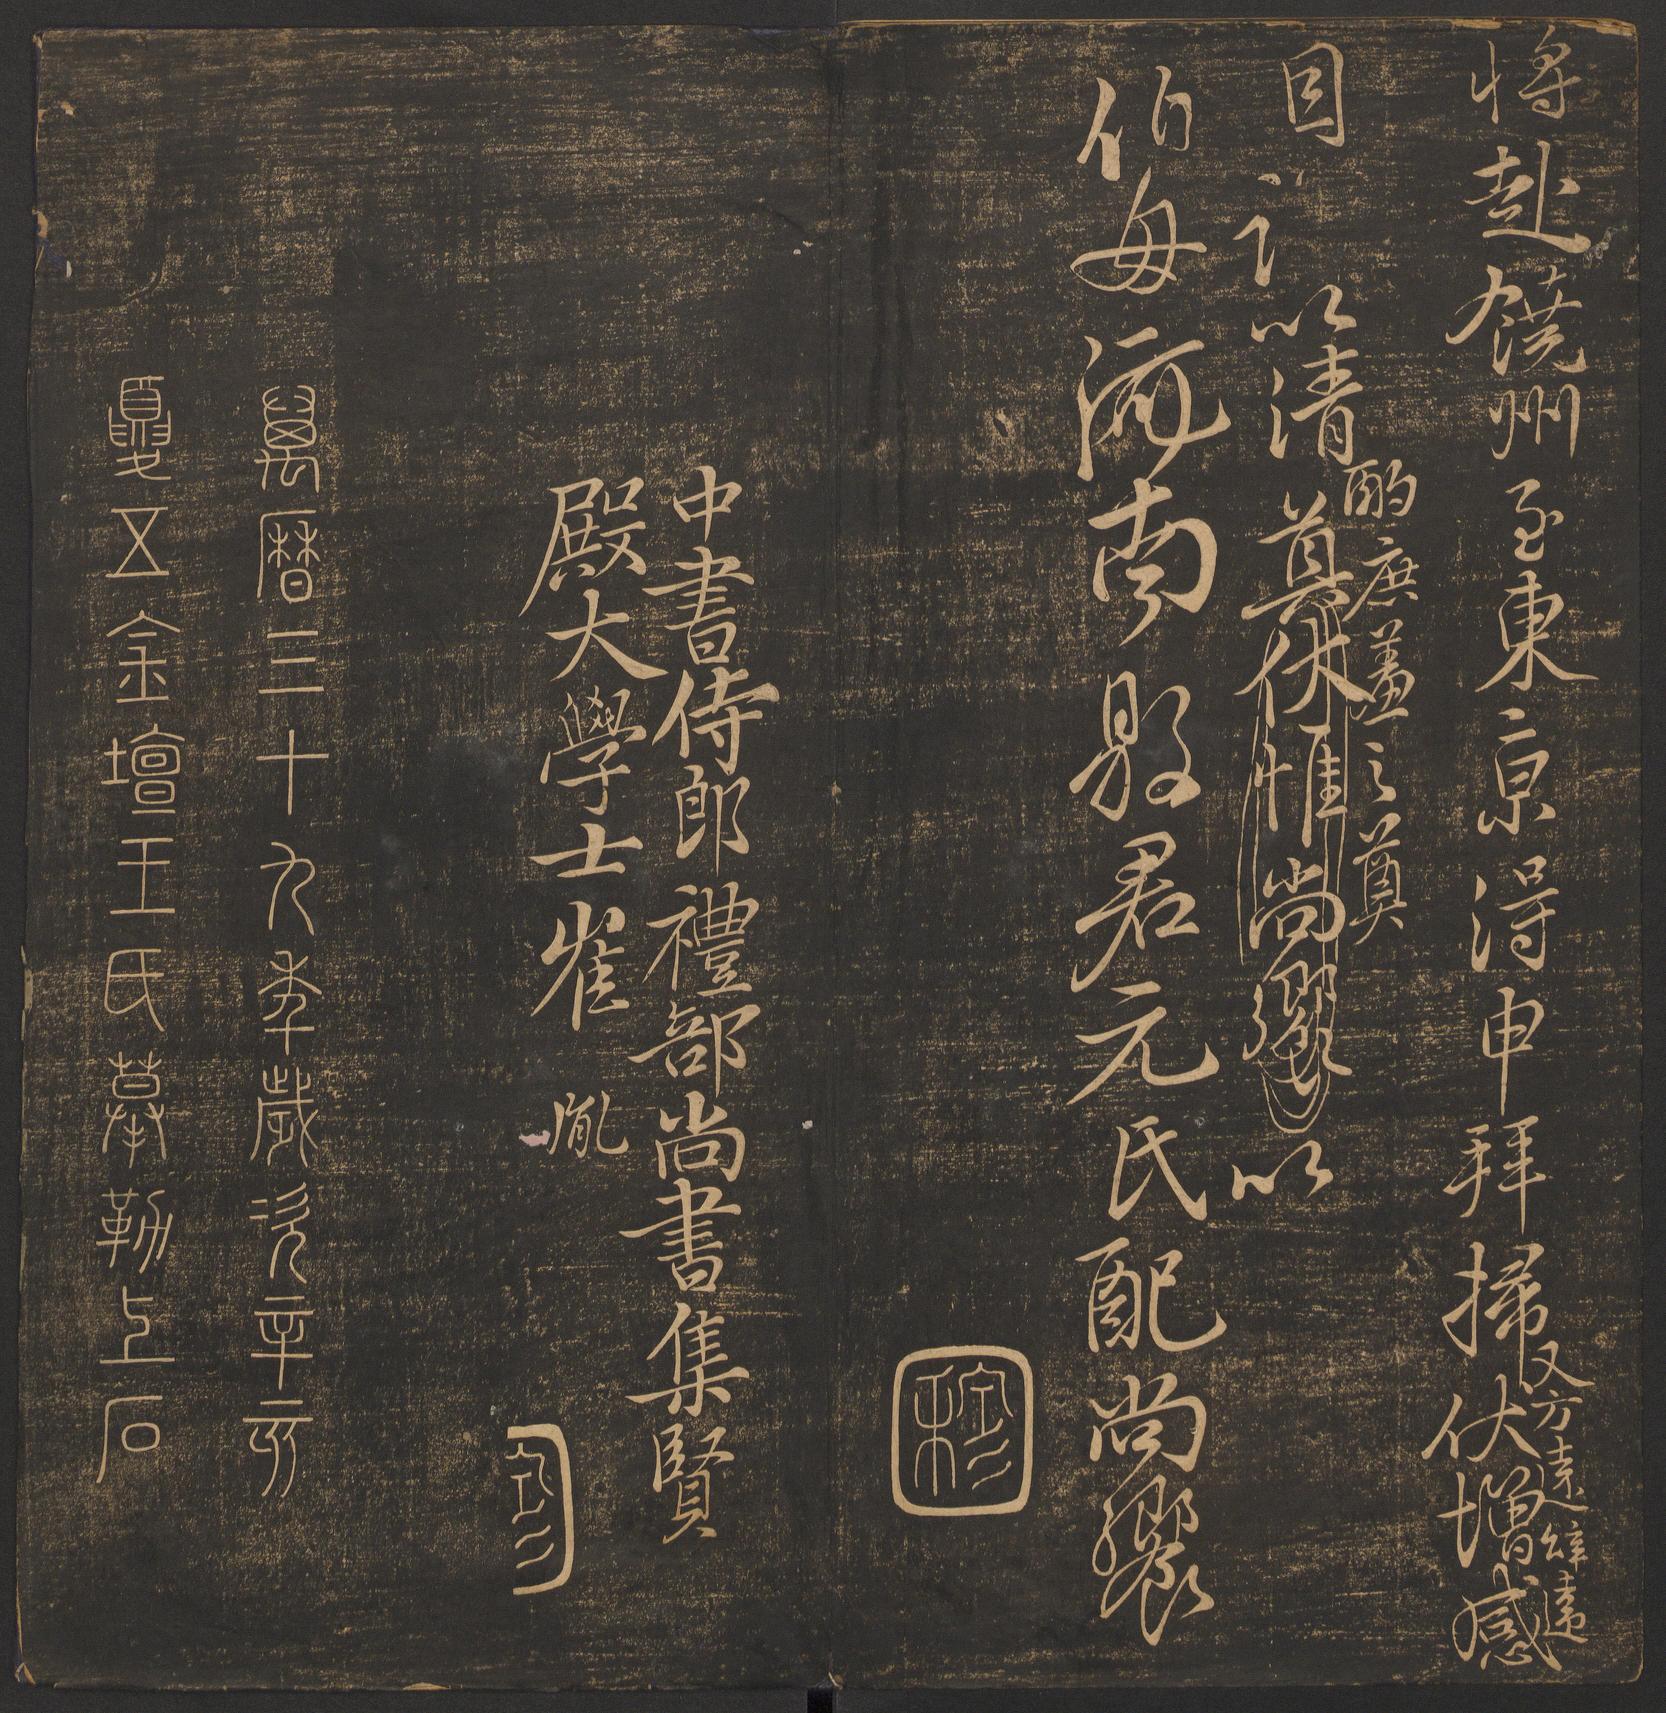 將赴饒州至東京得申拜掃伏增感
又方遠辭違
因謹以清奠伏惟尚饗以
酌庶羞之奠
伯母河南縣君元氏配尚饗
中書侍郎禮部尚書集賢
殿大學士崔胤
萬曆三十九季歲次辛亥
夏五金壇王氏摹勒上石